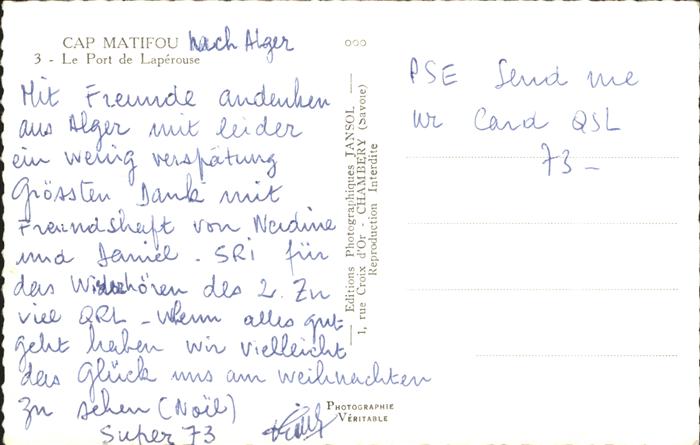 CAP MATIFOU nach Alger
3 - Le Port de Lapérouse
Mit Freunde andenken
aus Alger mit leider
ein weinig verspätung
Grössten Dank mit
Freundshaft von Nadine
und Daniel. SRi für
das Widerhören des 2. Zu
viel QRL - Wenn alles gut
geht haben wir vielleicht
das Glück uns am Weihnachten
zu sehen (Noël)
Super 73
Editions Photographiques JANSOL
1, rue Croix d'Or - CHAMBERY (Savoie)
Reproduction Interdite
PHOTOGRAPHIE
VÉRITABLE
PSE Send me
ur Card QSL
73 -